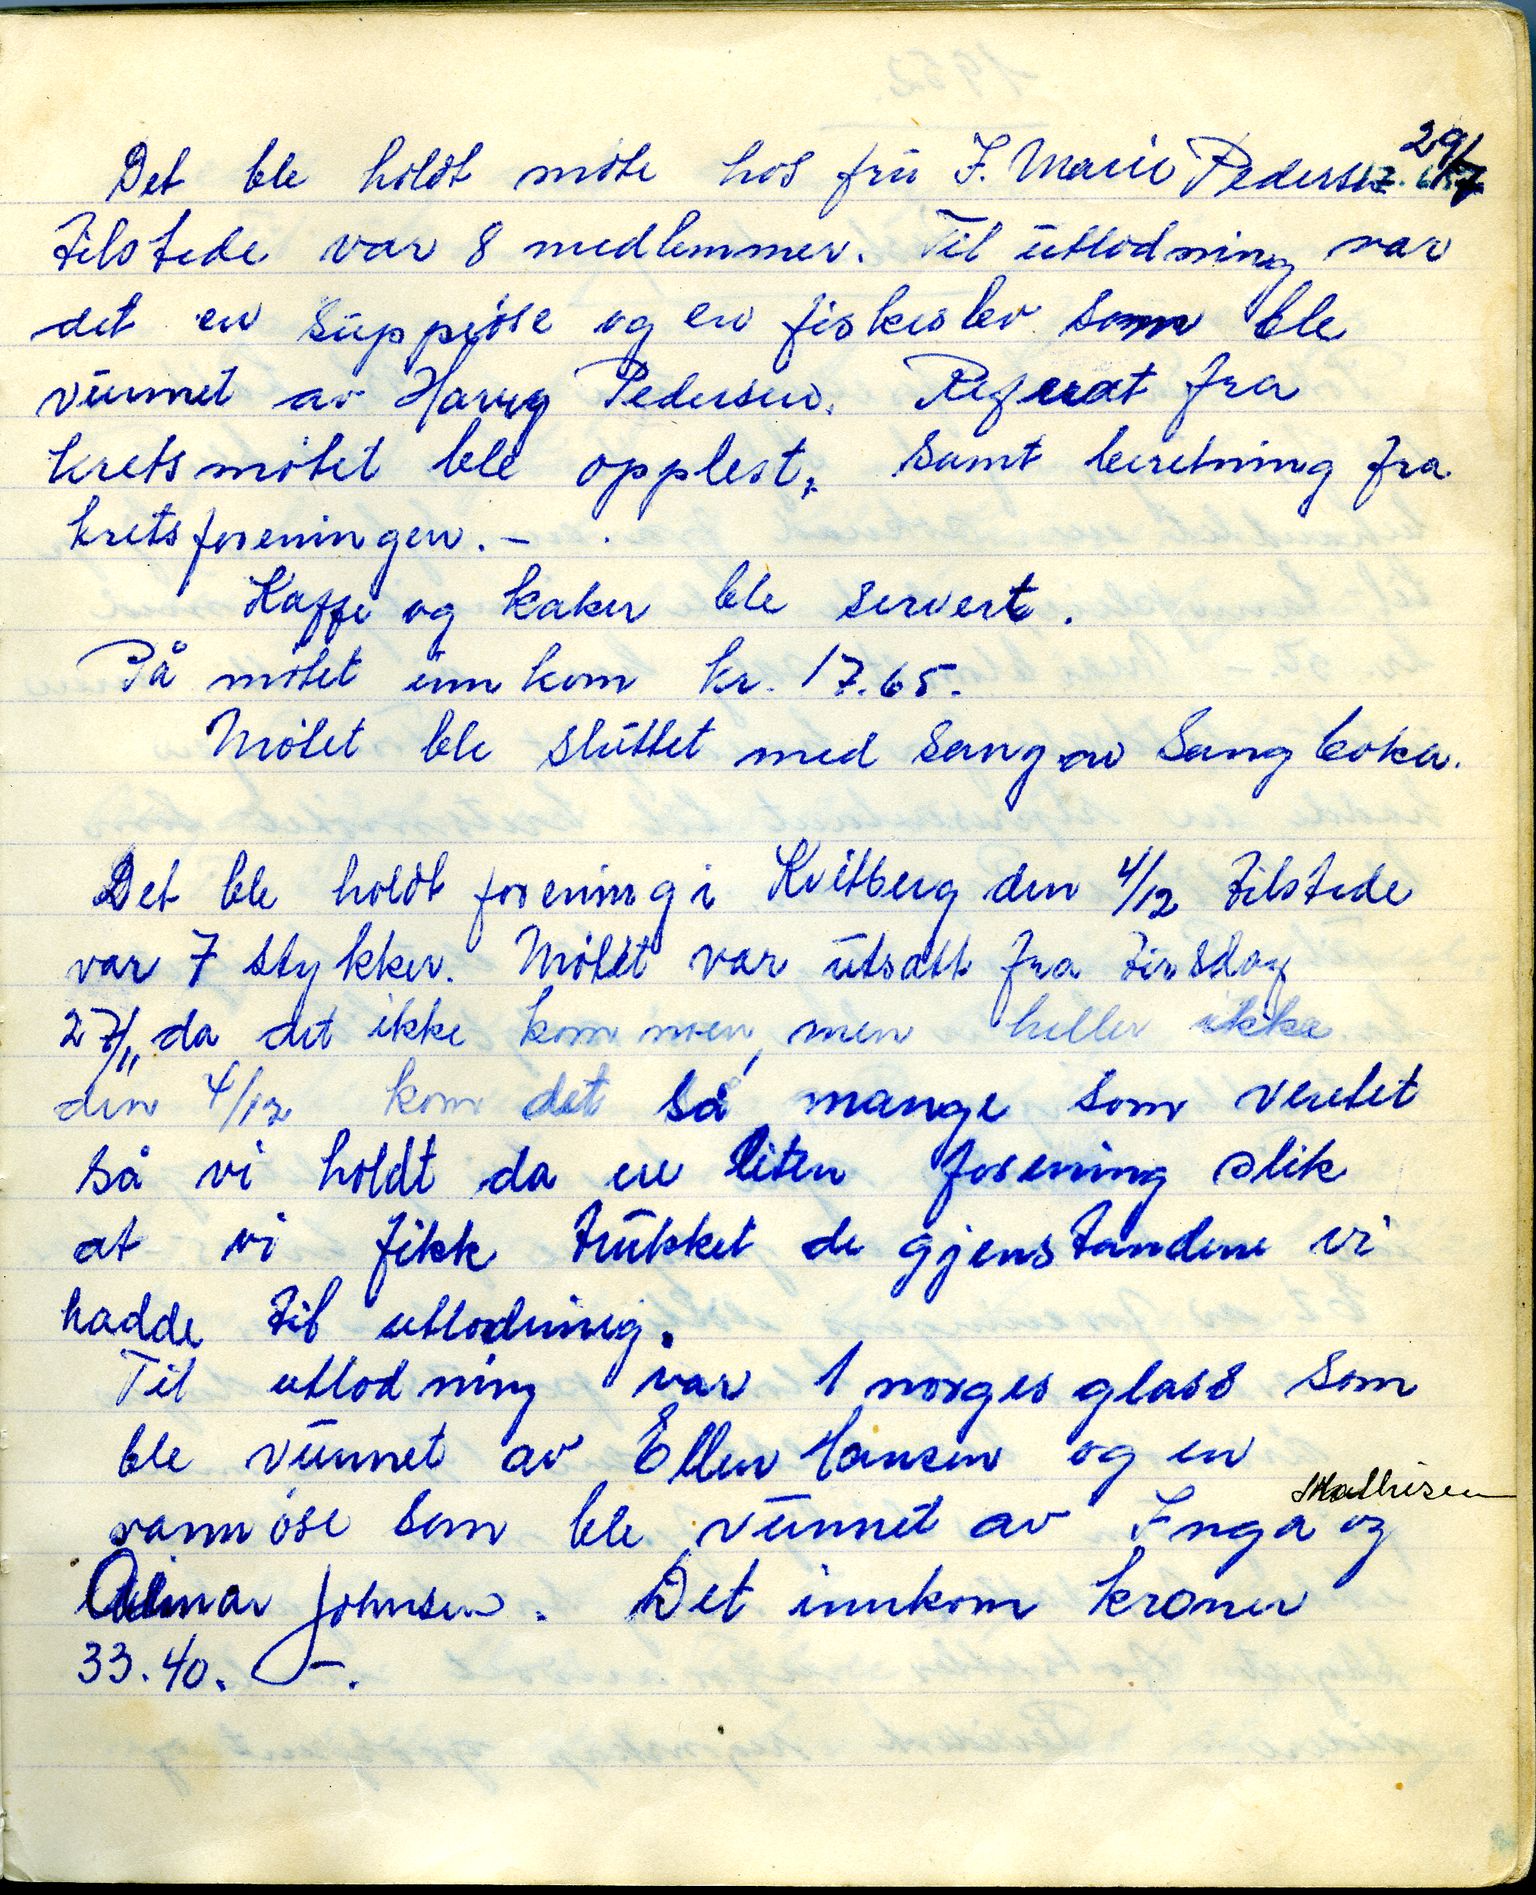 Det ble holdt møte hos frū J. Marie Pedersen 29/7
tilstede var 8 medlemmer. Til ūtlodning var
det en sūppeøse og en fiskeslev som ble
vūnnet av Harry Pedersen. Referat fra
kretsmøtet ble opplest, samt beretning fra
kretsforeningen. -
Kaffe og kaker ble servert.
På møtet innkom kr. 17.65.
Møtet ble slūttet med sang av Sangboka.
Det ble holdt forening i Kvitberg den 4/12 tilstede
var 7 stykker. Møtet var ūtsatt fra Tirsdag
27/11 da det ikke kom noen, men heller ikke
den 4/12 kom det så mange som ventet
så vi holdt da en liten forening slik
at vi fikk trūkket de gjenstandene vi
hadde til utlodning.
Til utlodning var 1 norgesglass som
ble vūnnet av Ellen Hansen og en
Mathisen
vannøse som ble vūnnet av Inga og
Johnsen. Det innkom kroner
33.40. -.